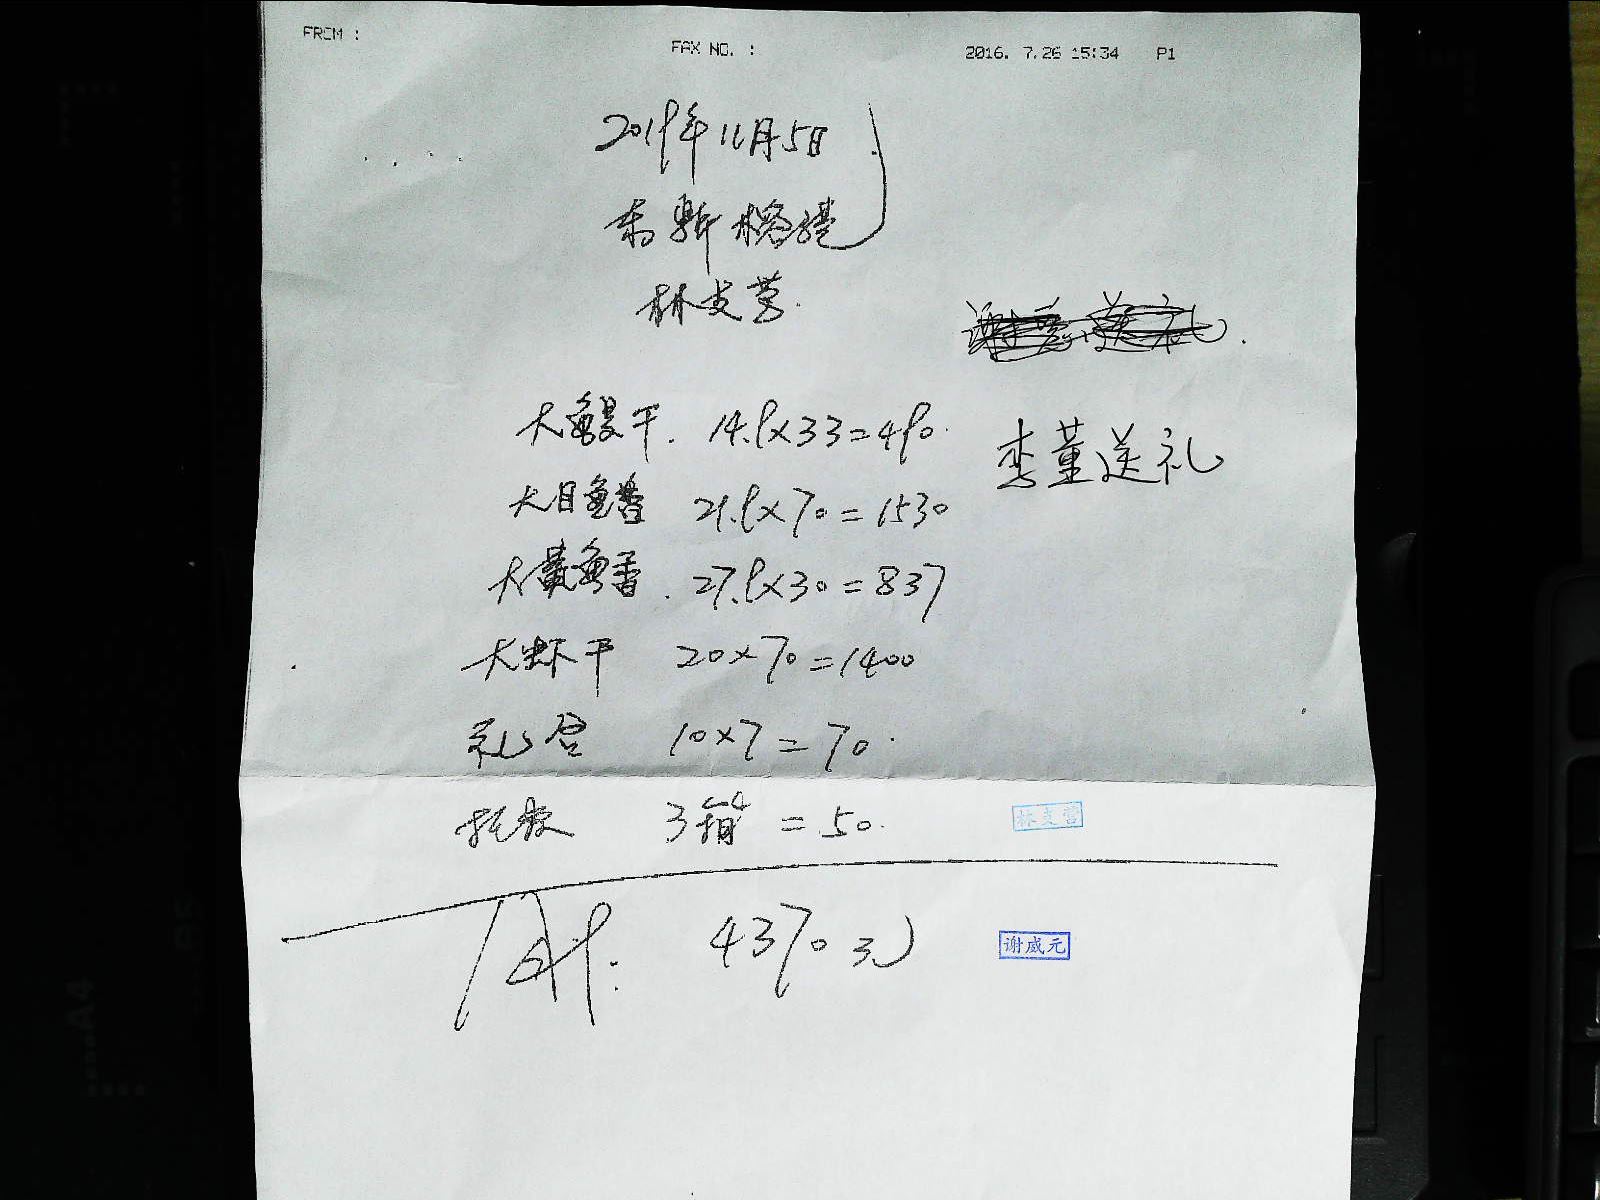 FROM :
FAX NO. :
2016. 7.26 15:34 P1
2019年11月5日
林支营
李董送礼
大鳗干. 14.9×33=490.
大目鱼鲞 21.9×70=1530
大黄鱼鲞. 27.9×30=837
大虾干 20×70=1400
礼盒 10×7=70.
3箱 =50.
林支营
合计: 4370元
谢威元